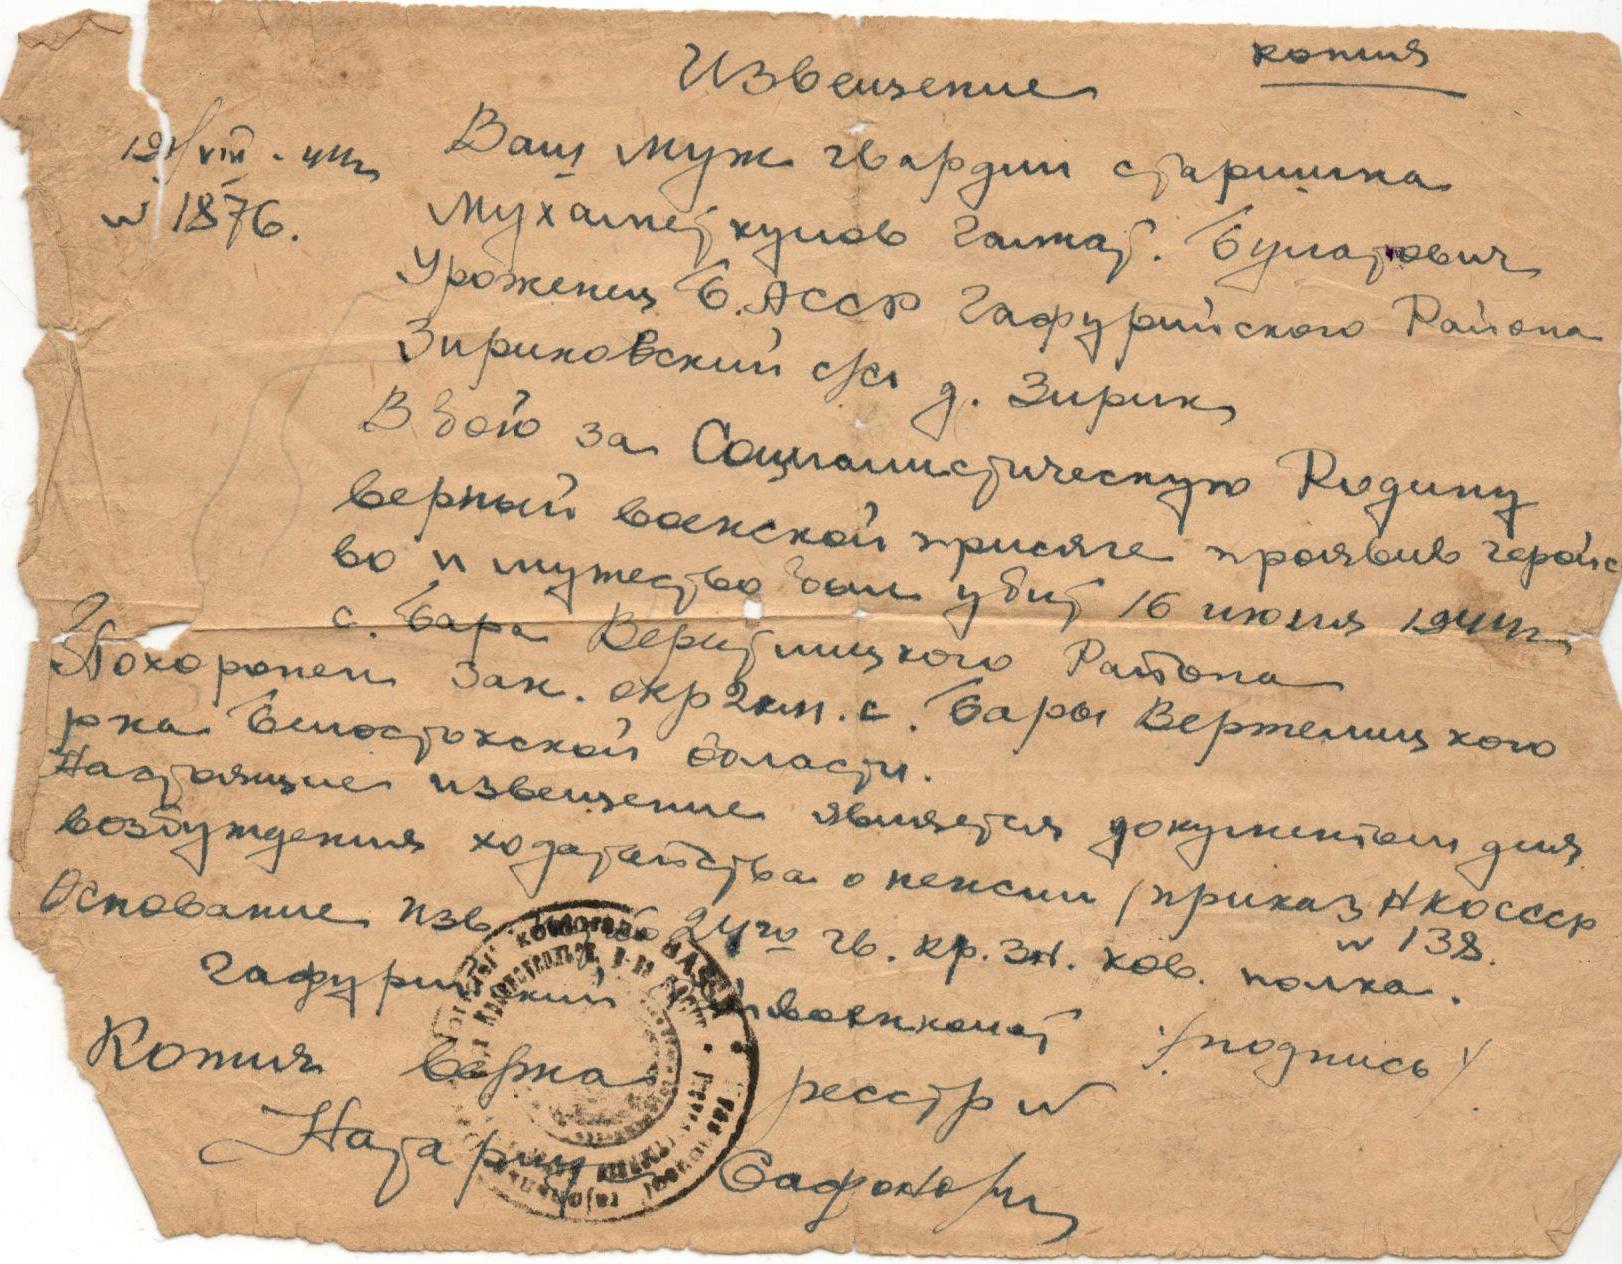 копия
Извещение
19/VIII - 44г
N 1876.
Ваш муж гвардии старшина
Мухаметкулов Галмат. Булатович
Уроженец Б.АССР Гафурийского Района
Зириковский с/с д. Зирик
В бою за Социалистическую Родину
верный воинской присяге проявив геройс
во и мужество был убит 16 июля 1944г
с. Бара Верителицкого Района
Похоронен Зап. окр 2км. с. Бары Вертелицкого
р-на Белостокской области.
Настоящие извещение является документом для
возбуждения ходатайства о пенсии /приказ НКОСССР
N 138.
Основание изв 24го гв. кр. Зн. кав. полка.
Гафурийский райвоенкомат /подпись/
Копия верна реестр N
Нотариус